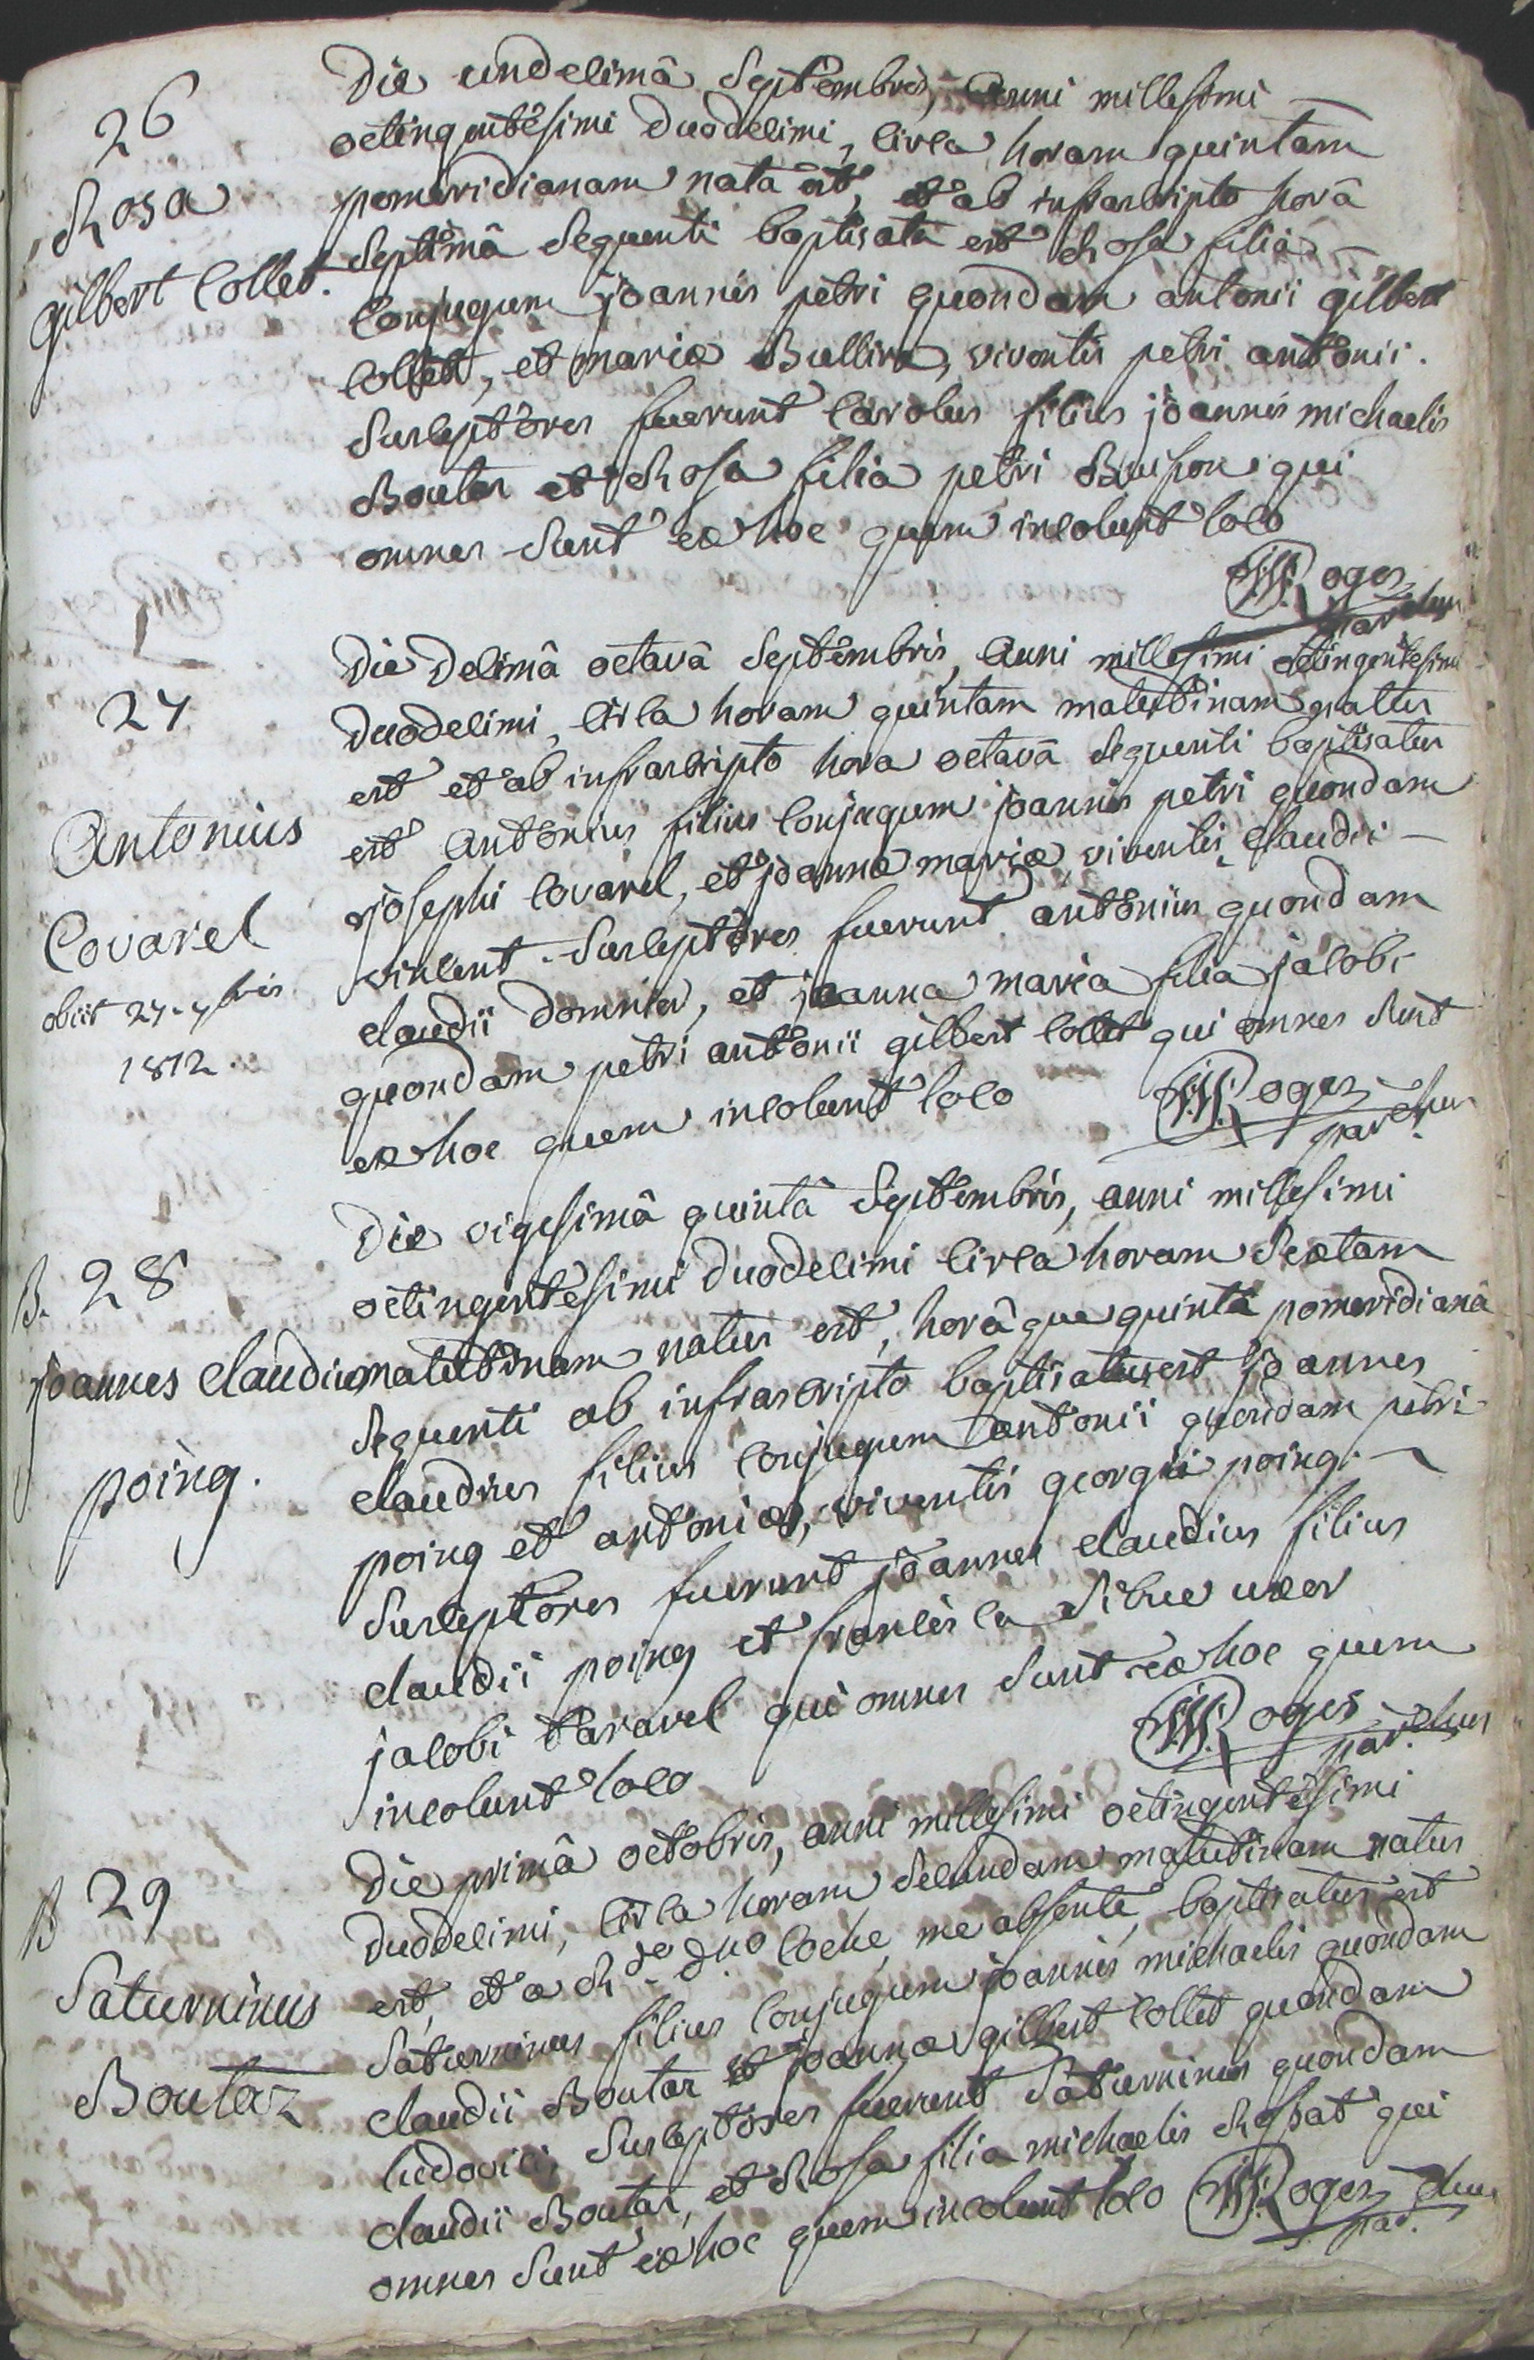 26
Rosa
gilbert Collet.
Die undecimâ Septembris, anni millesimi
octingentesimi duodecimi, circa horam quintam
pomeridianam nata est, et ab infrascripto horâ
Septimâ Sequenti baptisata est Rosa filia
Conjugum joannis petri quondam antonii gilbert
Collet, et mariæ Bullier, viventis petri antonii.
Susceptores fuerunt Carolus filius joannis michaelis
Boutaz et Rosa filia petri qui
omnes sunt ex hoc quem incolunt loco
Roges
parochus
27
Antonius
Covarel
obiit 27. 7bris
1812.
Die decimâ octavâ Septembris, anni millesimi octingentesimi
duodecimi, circa horam quintam matutinam natus
est et ab infrascripto hora octavâ Sequenti baptisatus
est antonius filius Conjugum joannis petri quondam
josephi Covarel, et joannæ mariæ, viventis Claudii
vincent. Susceptores fuerunt antonius quondam
claudii et joanna maria filia jacobi
quondam petri antonii gilbert Collet qui omnes sunt
ex hoc quem incolunt loco
Roges
parochus
B. 28
joannes claudius
poing.
Die vigesimâ quintâ Septembris, anni millesimi
octingentesimi duodecimi circa horam Sextam
matutinam natus est, horâque quintâ pomeridianâ
Sequenti ab infrascripto baptisatus est joannes
claudius filius Conjugum antonii quondam petri
poing et antoniæ, viventis georgii poing.
Susceptores fuerunt joannes claudius filius
claudii poing et francisca Silue uxor
jacobi taravel qui omnes sunt ex hoc quem
incolunt loco
Roges
parochus
B 29
Saturninus
Boutaz
Die primâ octobris, anni millesimi octingentesimi
duodecimi, circa horam Secundam matutinam natus
est, et a Rdo Dno Coche, me absente, baptisatus est
Saturninus filius Conjugum joannis michaelis quondam
claudii Boutaz et joannæ gilbert Collet quondam
ludovici, Susceptores fuerunt Saturninus quondam
claudii Boutaz, et Rosa filia michaelis Rossat qui
omnes sunt ex hoc quem incolunt loco
Roges
parochus